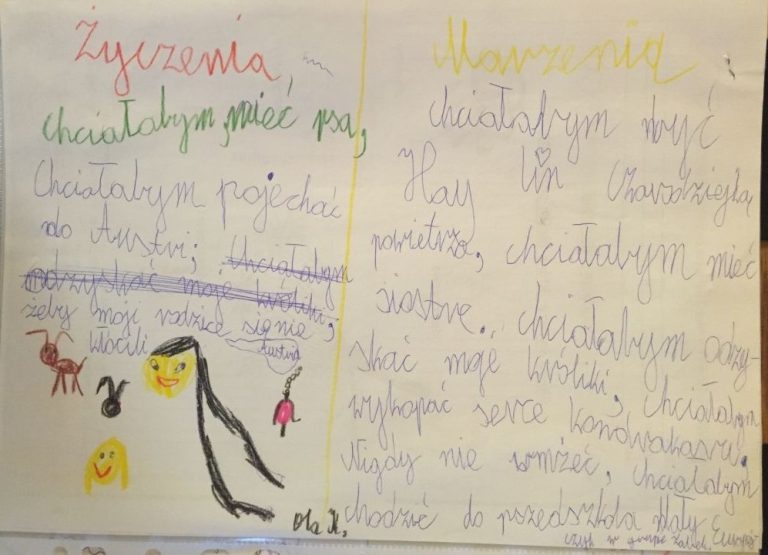 Życzenia,
chciałabym, mieć psa,
Chciałabym pojechać
do Austri; chciałabym
odzyskać moje króliki;
żeby moji rodzice się nie
kłócili
Austria
Marzenia
chciałabym być
Hay lin czarodziejką
powietrza, chciałabym mieć
siostrę, chciałabym odzy-
skać moje króliki, chciałabym
wykopać serce
Nigdy nie umżeć, chciałabym
chodzić do przedszkola Mały
czyli w grupie Żabek
Ola K.